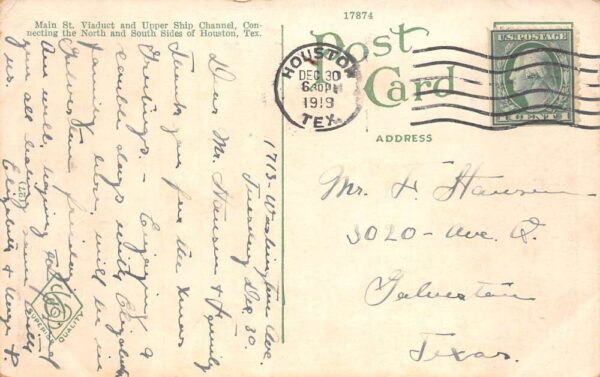 Main St. Viaduct and Upper Ship Channel, Con-
necting the North and South Sides of Houston, Tex.
17874
Post
Card
HOUSTON
DEC 30
6:30 PM
1919
TEX.
U.S. POSTAGE
1 CENT 1
ADDRESS
Mr. H. Hansen
3020-Ave. Q.
Galveston
Texas.
1713-Washington Ave.
Tuesday Dec 30.
Dear Mr. Hansen & Family
Thank you for the Xmas
Greetings. - Enjoying a
couple days with Elizabeth
family here. will be in
Galveston Friday.
Am well, hoping to find
you all having same with
us.
Elizabeth &
SUPERIOR QUALITY